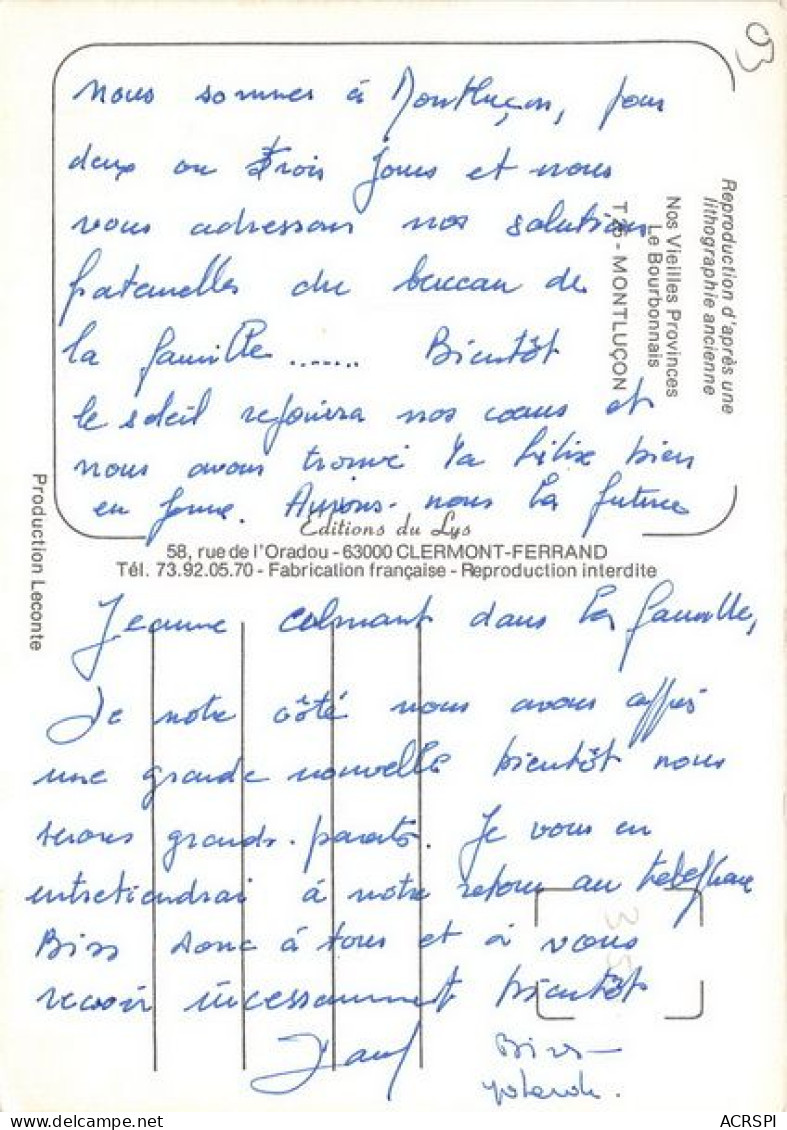 03
nous sommes à Montluçon, pour
deux ou trois jours et nous
vous adressons nos salutations
fraternelles du berceau de
la famille ....... Bientôt
le soleil rejouira nos cœurs et
nous avons trouvé Ta Félix bien
en forme. Aurions-nous la future
Reproduction d'après une
lithographie ancienne
Nos Vieilles Provinces
Le Bourbonnais
T 26 - MONTLUÇON
Editions du Lys
58, rue de l'Oradou - 63000 CLERMONT-FERRAND
Tél. 73.92.05.70 - Fabrication française - Reproduction interdite
Production Leconte
Jeanne dans la famille,
De notre côté nous avons appris
une grande nouvelle bientôt nous
serons grands-parents. Je vous en
entretiendrai à notre retour au telephone
Bises donc à tous et à vous
revoir incessamment bientôt
Bises
Yolande.
35
ACRSPI